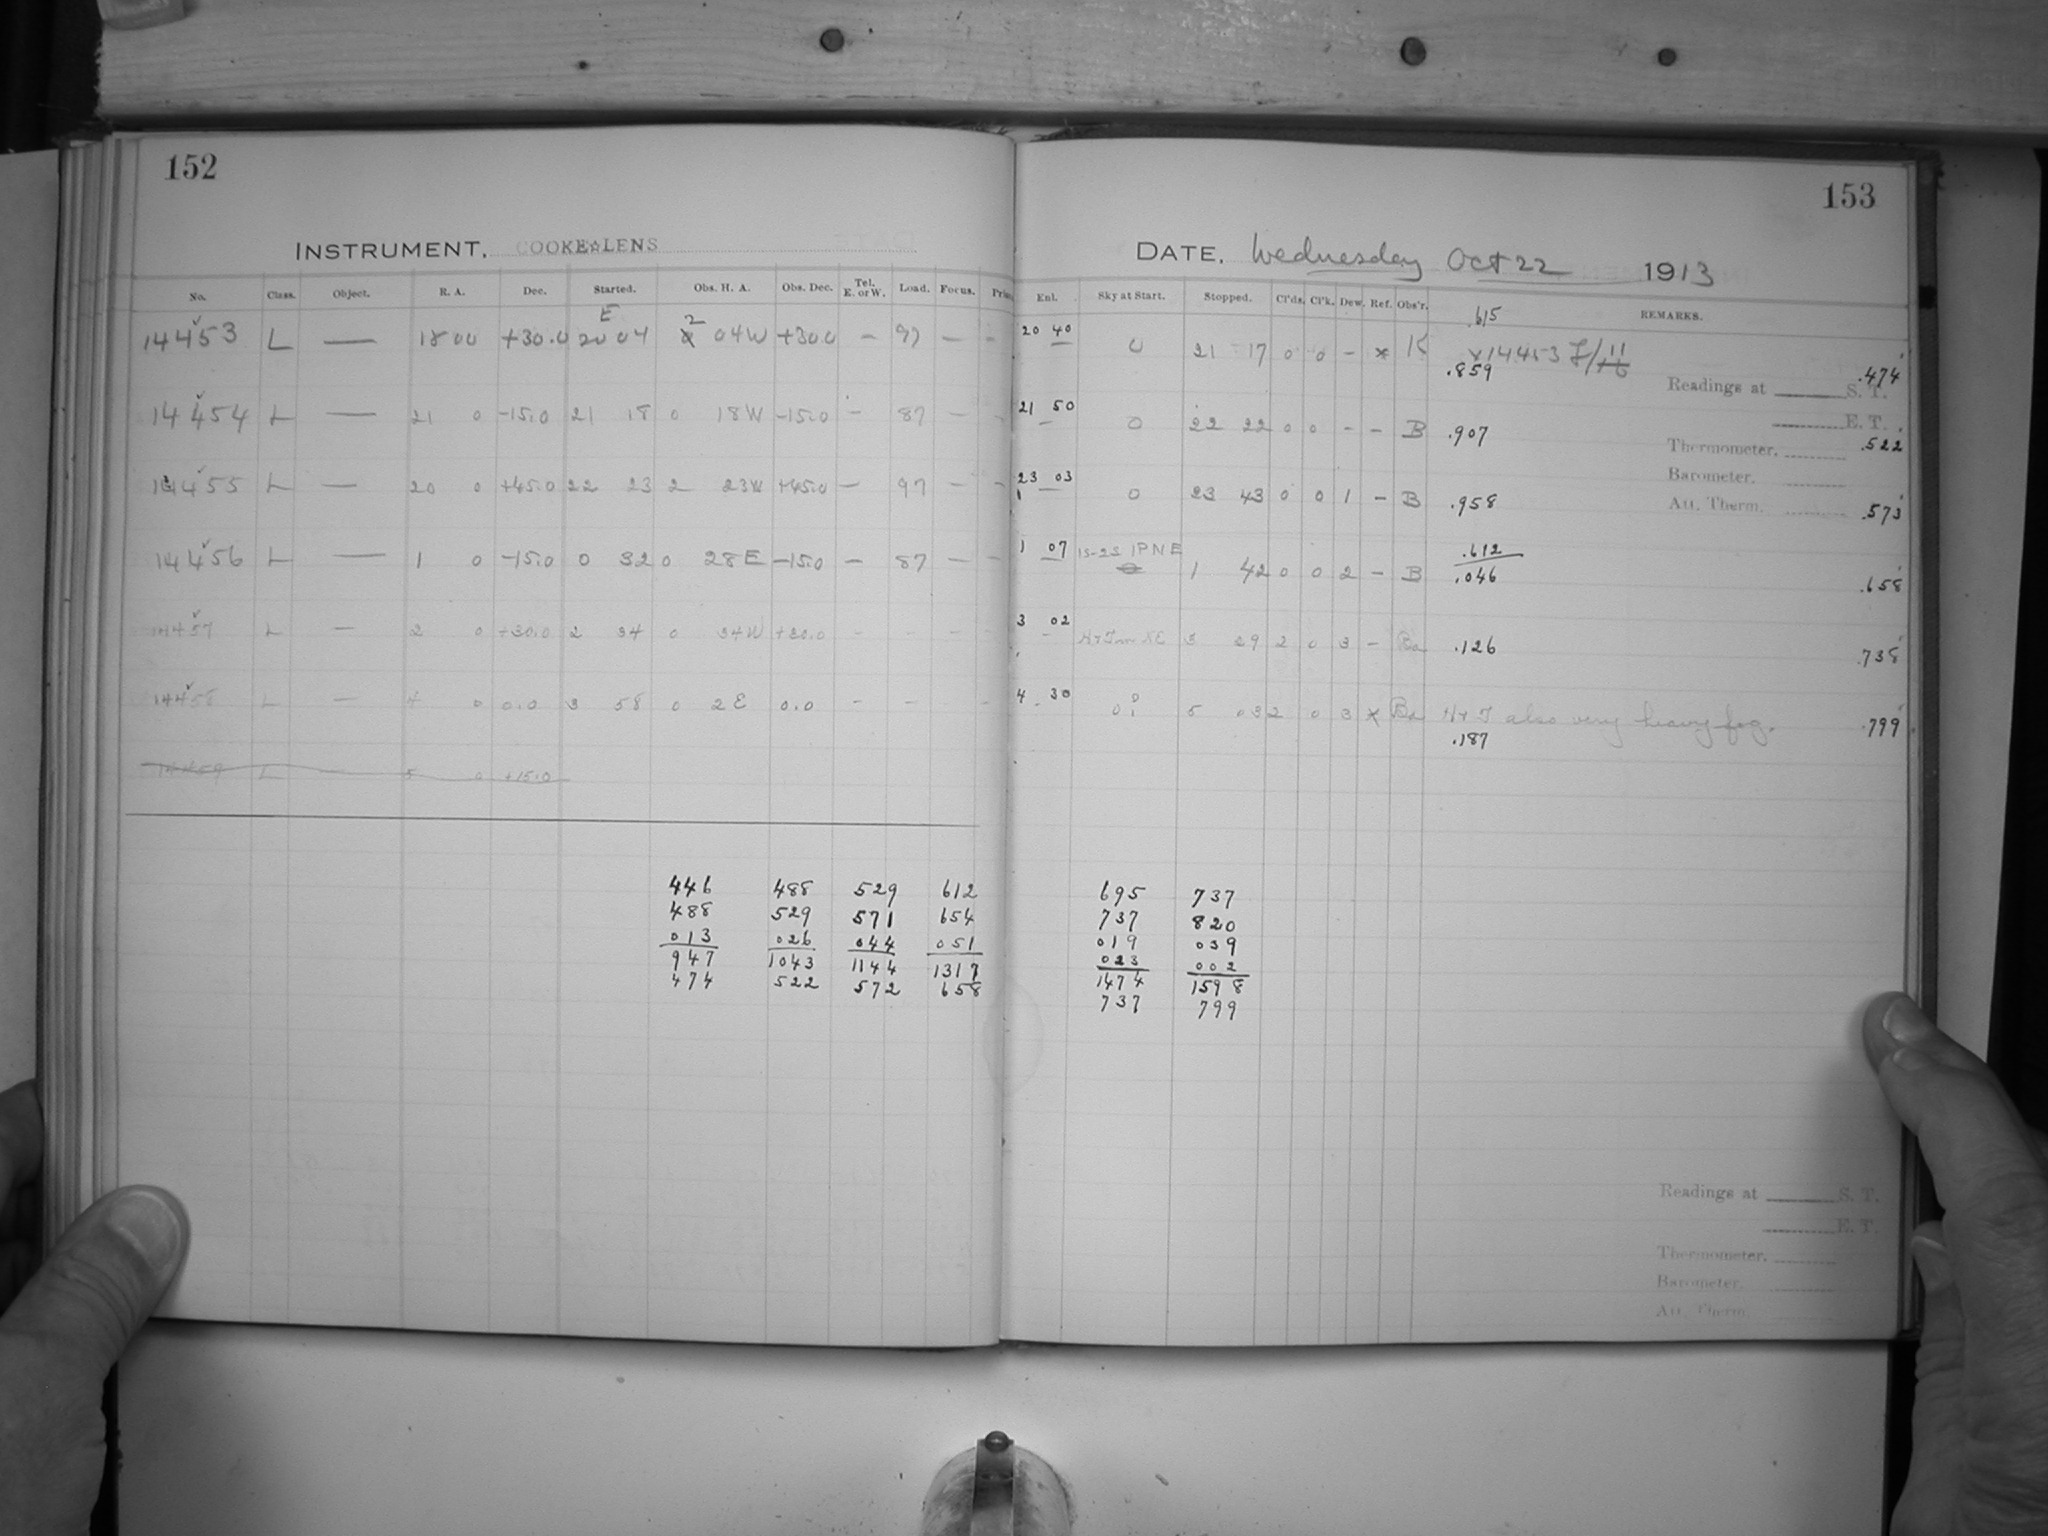 152
INSTRUMENT. COOKE☆LENS
No. Class. Object. R. A. Dec. Started. Obs. H. A. Obs. Dec. Tel. E. or W. Load. Focus.
E
14453 L — 18 00 +30.0 20 04 2 04W +30.0 — 97 —
14454 L — 21 0 -15.0 21 18 0 18W -15.0 - 87 —
14455 L — 20 0 +45.0 22 23 2 23W +45.0 — 97 —
14456 L — 1 0 -15.0 0 32 0 28E -15.0 — 87 —
14457 L — 2 0 +30.0 2 34 0 34W +30.0 - - -
14458 L — 4 0 0.0 3 58 0 2E 0.0 - - -
14459 L — 5 0 +15.0
446 488 529 612
488 529 571 654
013 026 044 051
947 1043 1144 1317
474 522 572 658
153
DATE. Wednesday Oct 22 1913
Enl. Sky at Start. Stopped. Cl'ds. Cl'k. Dew. Ref. Obs'r. REMARKS.
.615
20 40 0 21 17 0 0 - * K x14453 f/11
.859 .474
Readings at S. T.
E. T.
21 50 0 22 22 0 0 - - B .907 .522
Thermometer.
Barometer.
23 03 0 23 43 0 0 1 - B .958 .573
Att. Therm.
1 07 15-25 1PNE 1 42 0 0 2 - B .612
.046 .658
3 02 H+T in NE 3 29 2 0 3 - Ba .126 .738
4 30 5 03 2 0 3 * Ba H+T also very heavy fog. .799
.187
695 737
737 820
019 039
023 002
1474 1598
737 799
Readings at S. T.
E. T.
Thermometer.
Barometer.
Att. Therm.